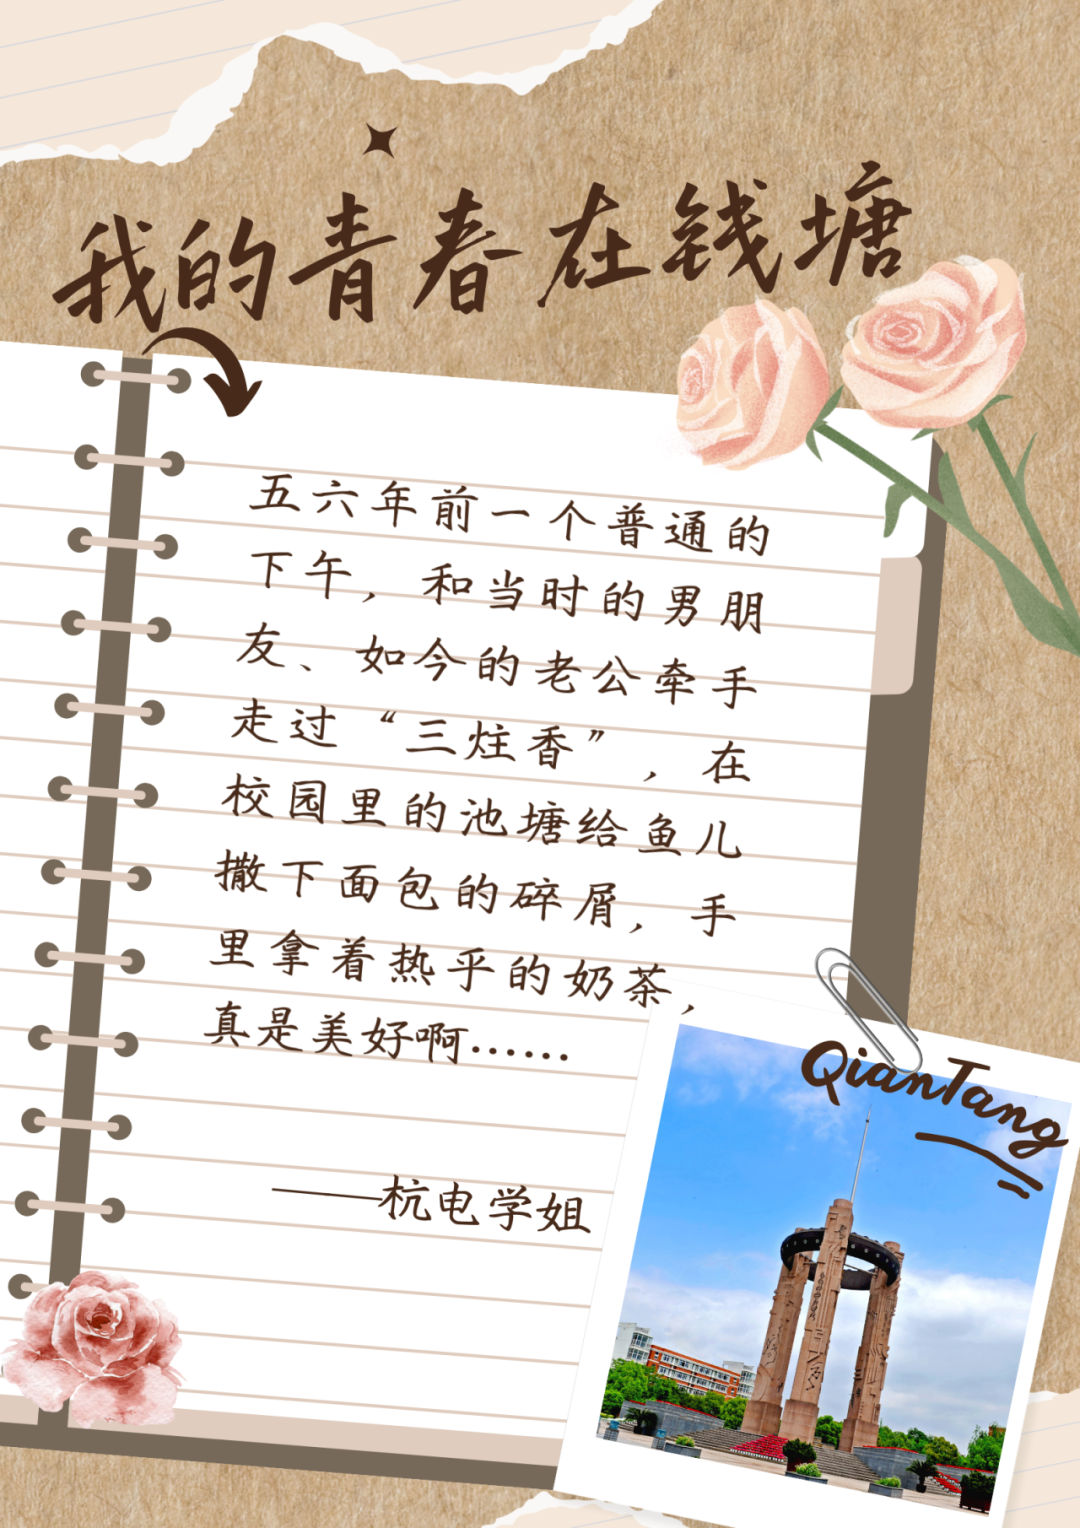 我的青春在钱塘
五六年前一个普通的
下午，和当时的男朋
友、如今的老公牵手
走过“三炷香”，在
校园里的池塘给鱼儿
撒下面包的碎屑，手
里拿着热乎的奶茶，
真是美好啊......
——杭电学姐
QianTang